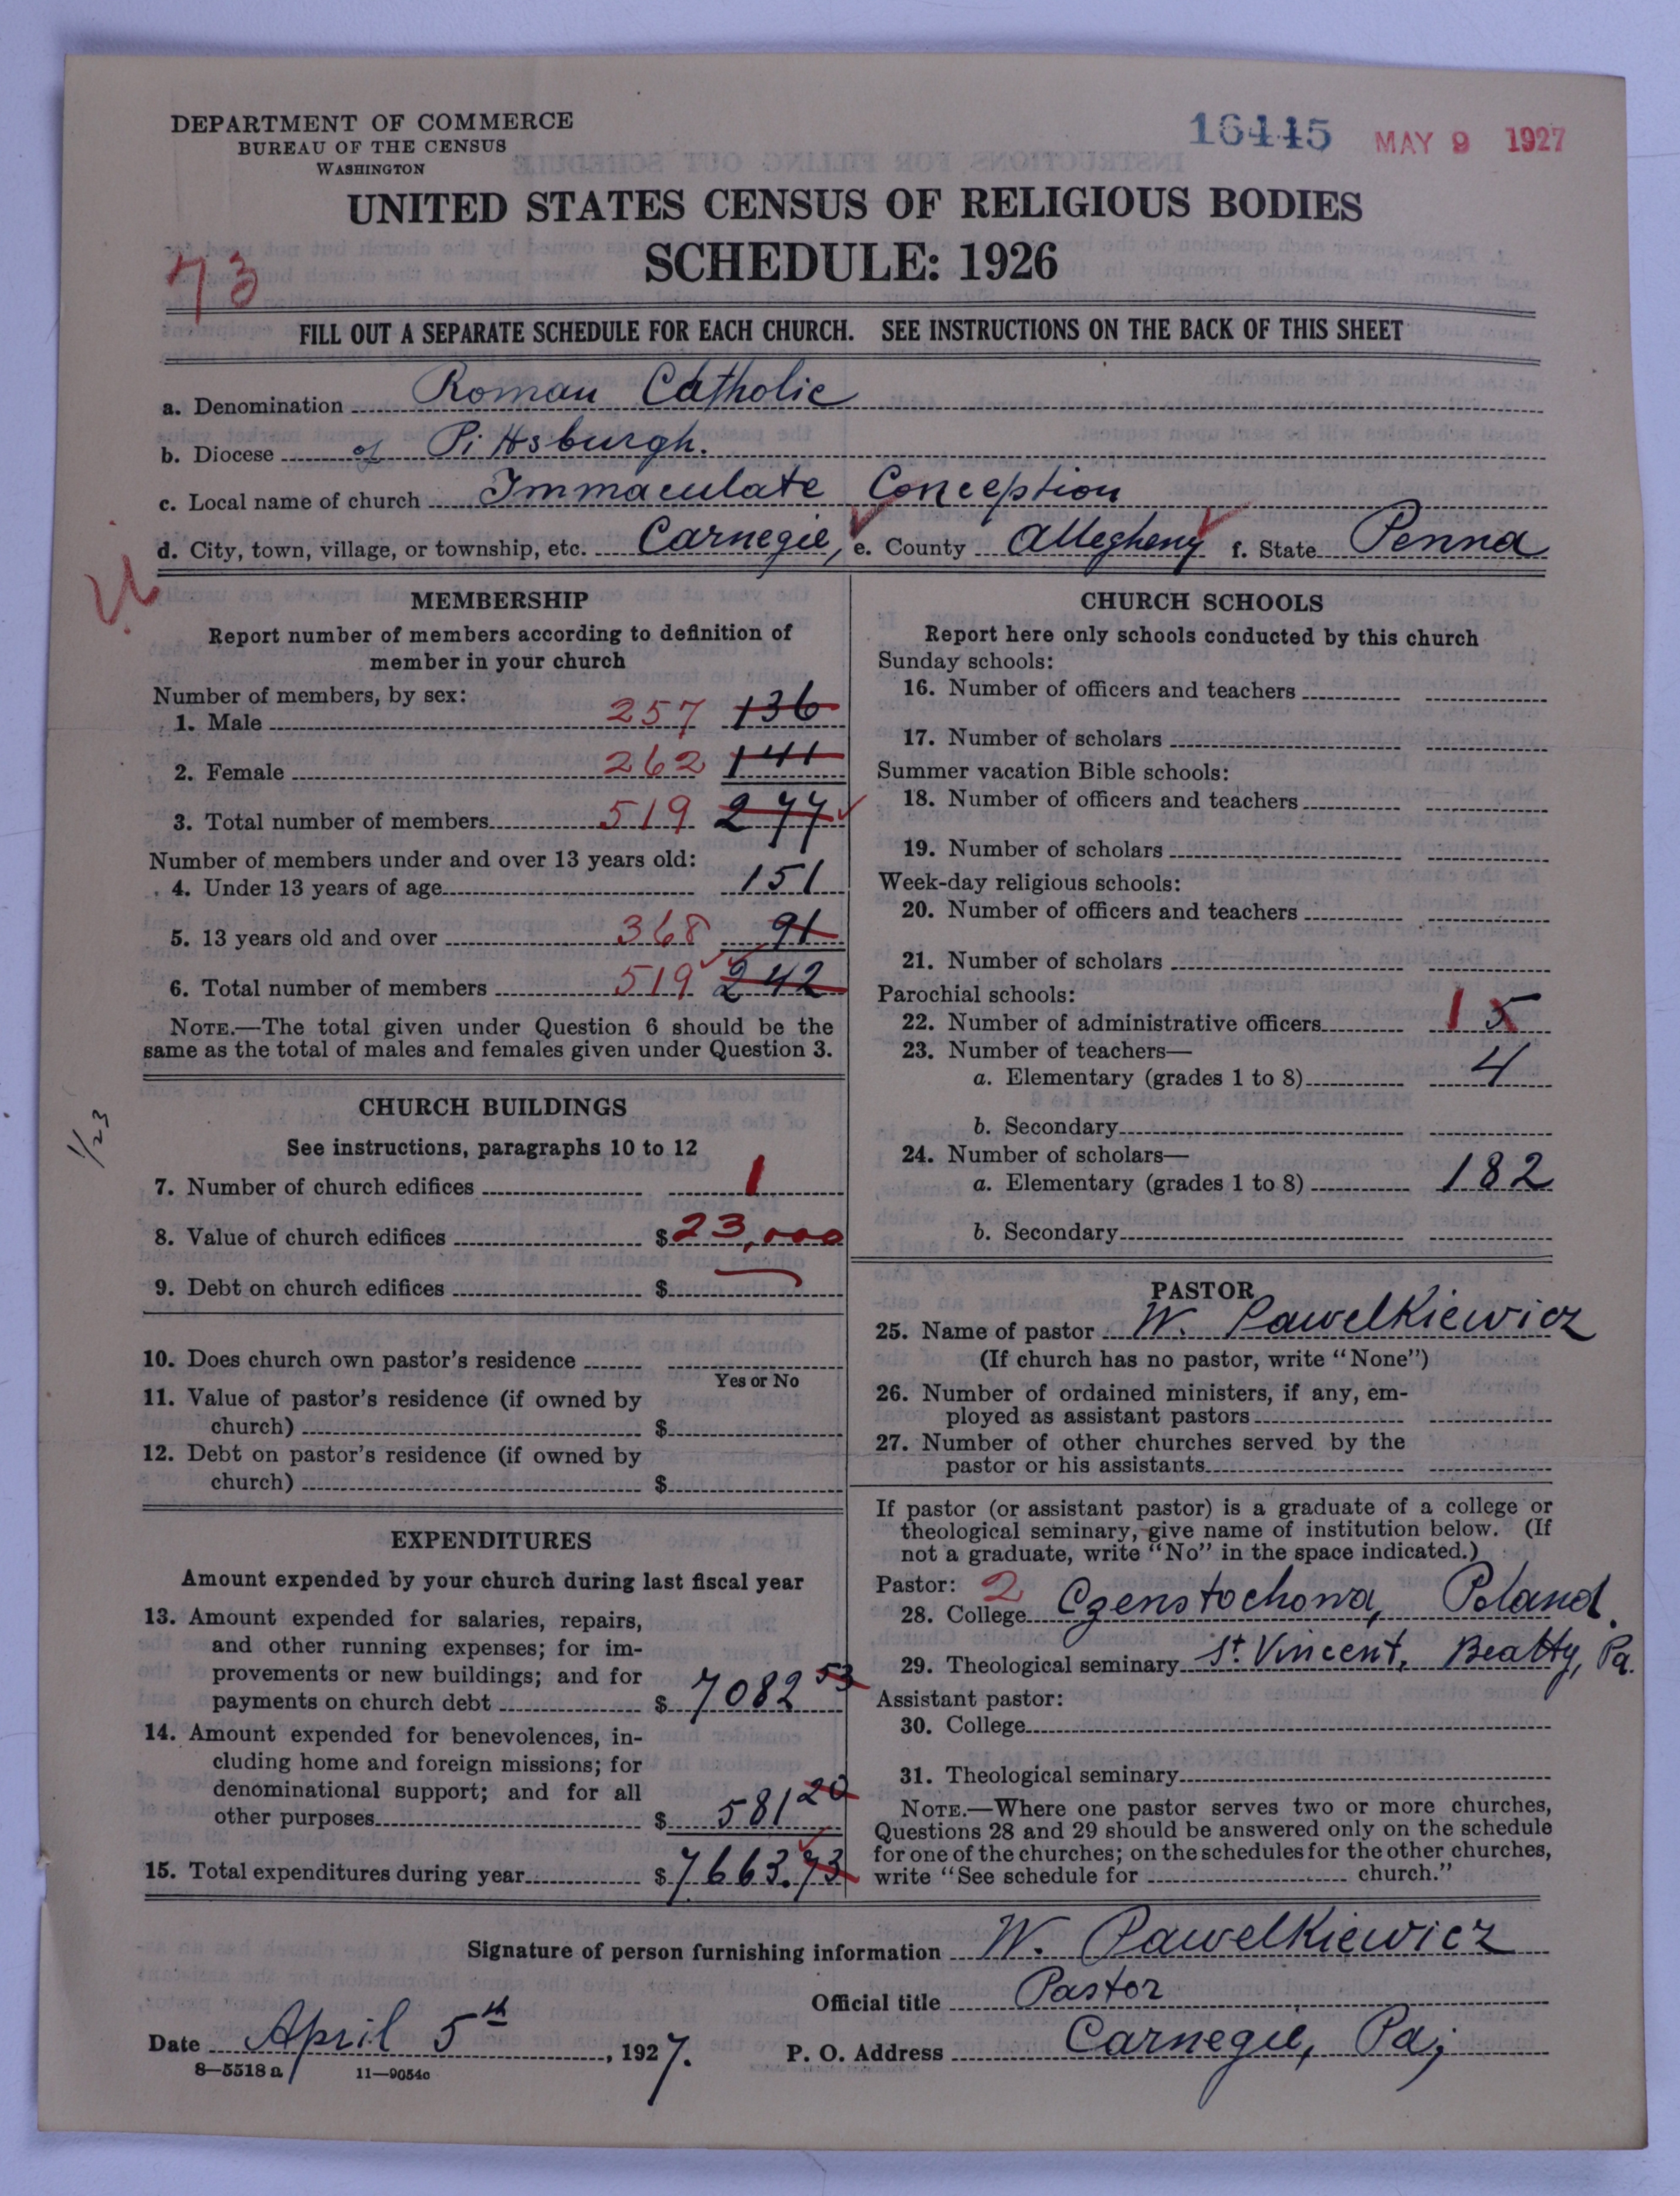 DEPARTMENT OF COMMERCE
BUREAU OF THE CENSUS
WASHINGTON
16445 MAY 9 1927
UNITED STATES CENSUS OF RELIGIOUS BODIES
SCHEDULE: 1926
73
FILL OUT A SEPARATE SCHEDULE FOR EACH CHURCH. SEE INSTRUCTIONS ON THE BACK OF THIS SHEET
a. Denomination Roman Catholic
b. Diocese of Pittsburgh.
c. Local name of church Immaculate Conception
d. City, town, village, or township, etc. Carnegie, e. County Allegheny f. State Penna
MEMBERSHIP
Report number of members according to definition of
member in your church
Number of members, by sex:
1. Male 257 136
2. Female 262 141
3. Total number of members 519 277
Number of members under and over 13 years old:
4. Under 13 years of age 151
5. 13 years old and over 368 91
6. Total number of members 519 242
NOTE.—The total given under Question 6 should be the
same as the total of males and females given under Question 3.
1/23
CHURCH BUILDINGS
See instructions, paragraphs 10 to 12
7. Number of church edifices 1
8. Value of church edifices $23,000
9. Debt on church edifices $
10. Does church own pastor's residence
Yes or No
11. Value of pastor's residence (if owned by
church) $
12. Debt on pastor's residence (if owned by
church) $
EXPENDITURES
Amount expended by your church during last fiscal year
13. Amount expended for salaries, repairs,
and other running expenses; for im-
provements or new buildings; and for
payments on church debt $ 7082 53
14. Amount expended for benevolences, in-
cluding home and foreign missions; for
denominational support; and for all
other purposes $ 581 20
15. Total expenditures during year $7663.73
CHURCH SCHOOLS
Report here only schools conducted by this church
Sunday schools:
16. Number of officers and teachers
17. Number of scholars
Summer vacation Bible schools:
18. Number of officers and teachers
19. Number of scholars
Week-day religious schools:
20. Number of officers and teachers
21. Number of scholars
Parochial schools:
22. Number of administrative officers 1 5
23. Number of teachers—
a. Elementary (grades 1 to 8) 4
b. Secondary
24. Number of scholars—
a. Elementary (grades 1 to 8) 182
b. Secondary
PASTOR
25. Name of pastor W. Pawelkiewicz
(If church has no pastor, write "None")
26. Number of ordained ministers, if any, em-
ployed as assistant pastors
27. Number of other churches served by the
pastor or his assistants
If pastor (or assistant pastor) is a graduate of a college or
theological seminary, give name of institution below. (If
not a graduate, write "No" in the space indicated.)
Pastor: 2
28. College Czenstochowa, Poland.
29. Theological seminary St. Vincent, Beatty, Pa.
Assistant pastor:
30. College
31. Theological seminary
NOTE.—Where one pastor serves two or more churches,
Questions 28 and 29 should be answered only on the schedule
for one of the churches; on the schedules for the other churches,
write "See schedule for church."
Signature of person furnishing information W. Pawelkiewicz
Official title Pastor
Date April 5th, 1927.
P. O. Address Carnegie, Pa;
8—5518 a 11—9054c